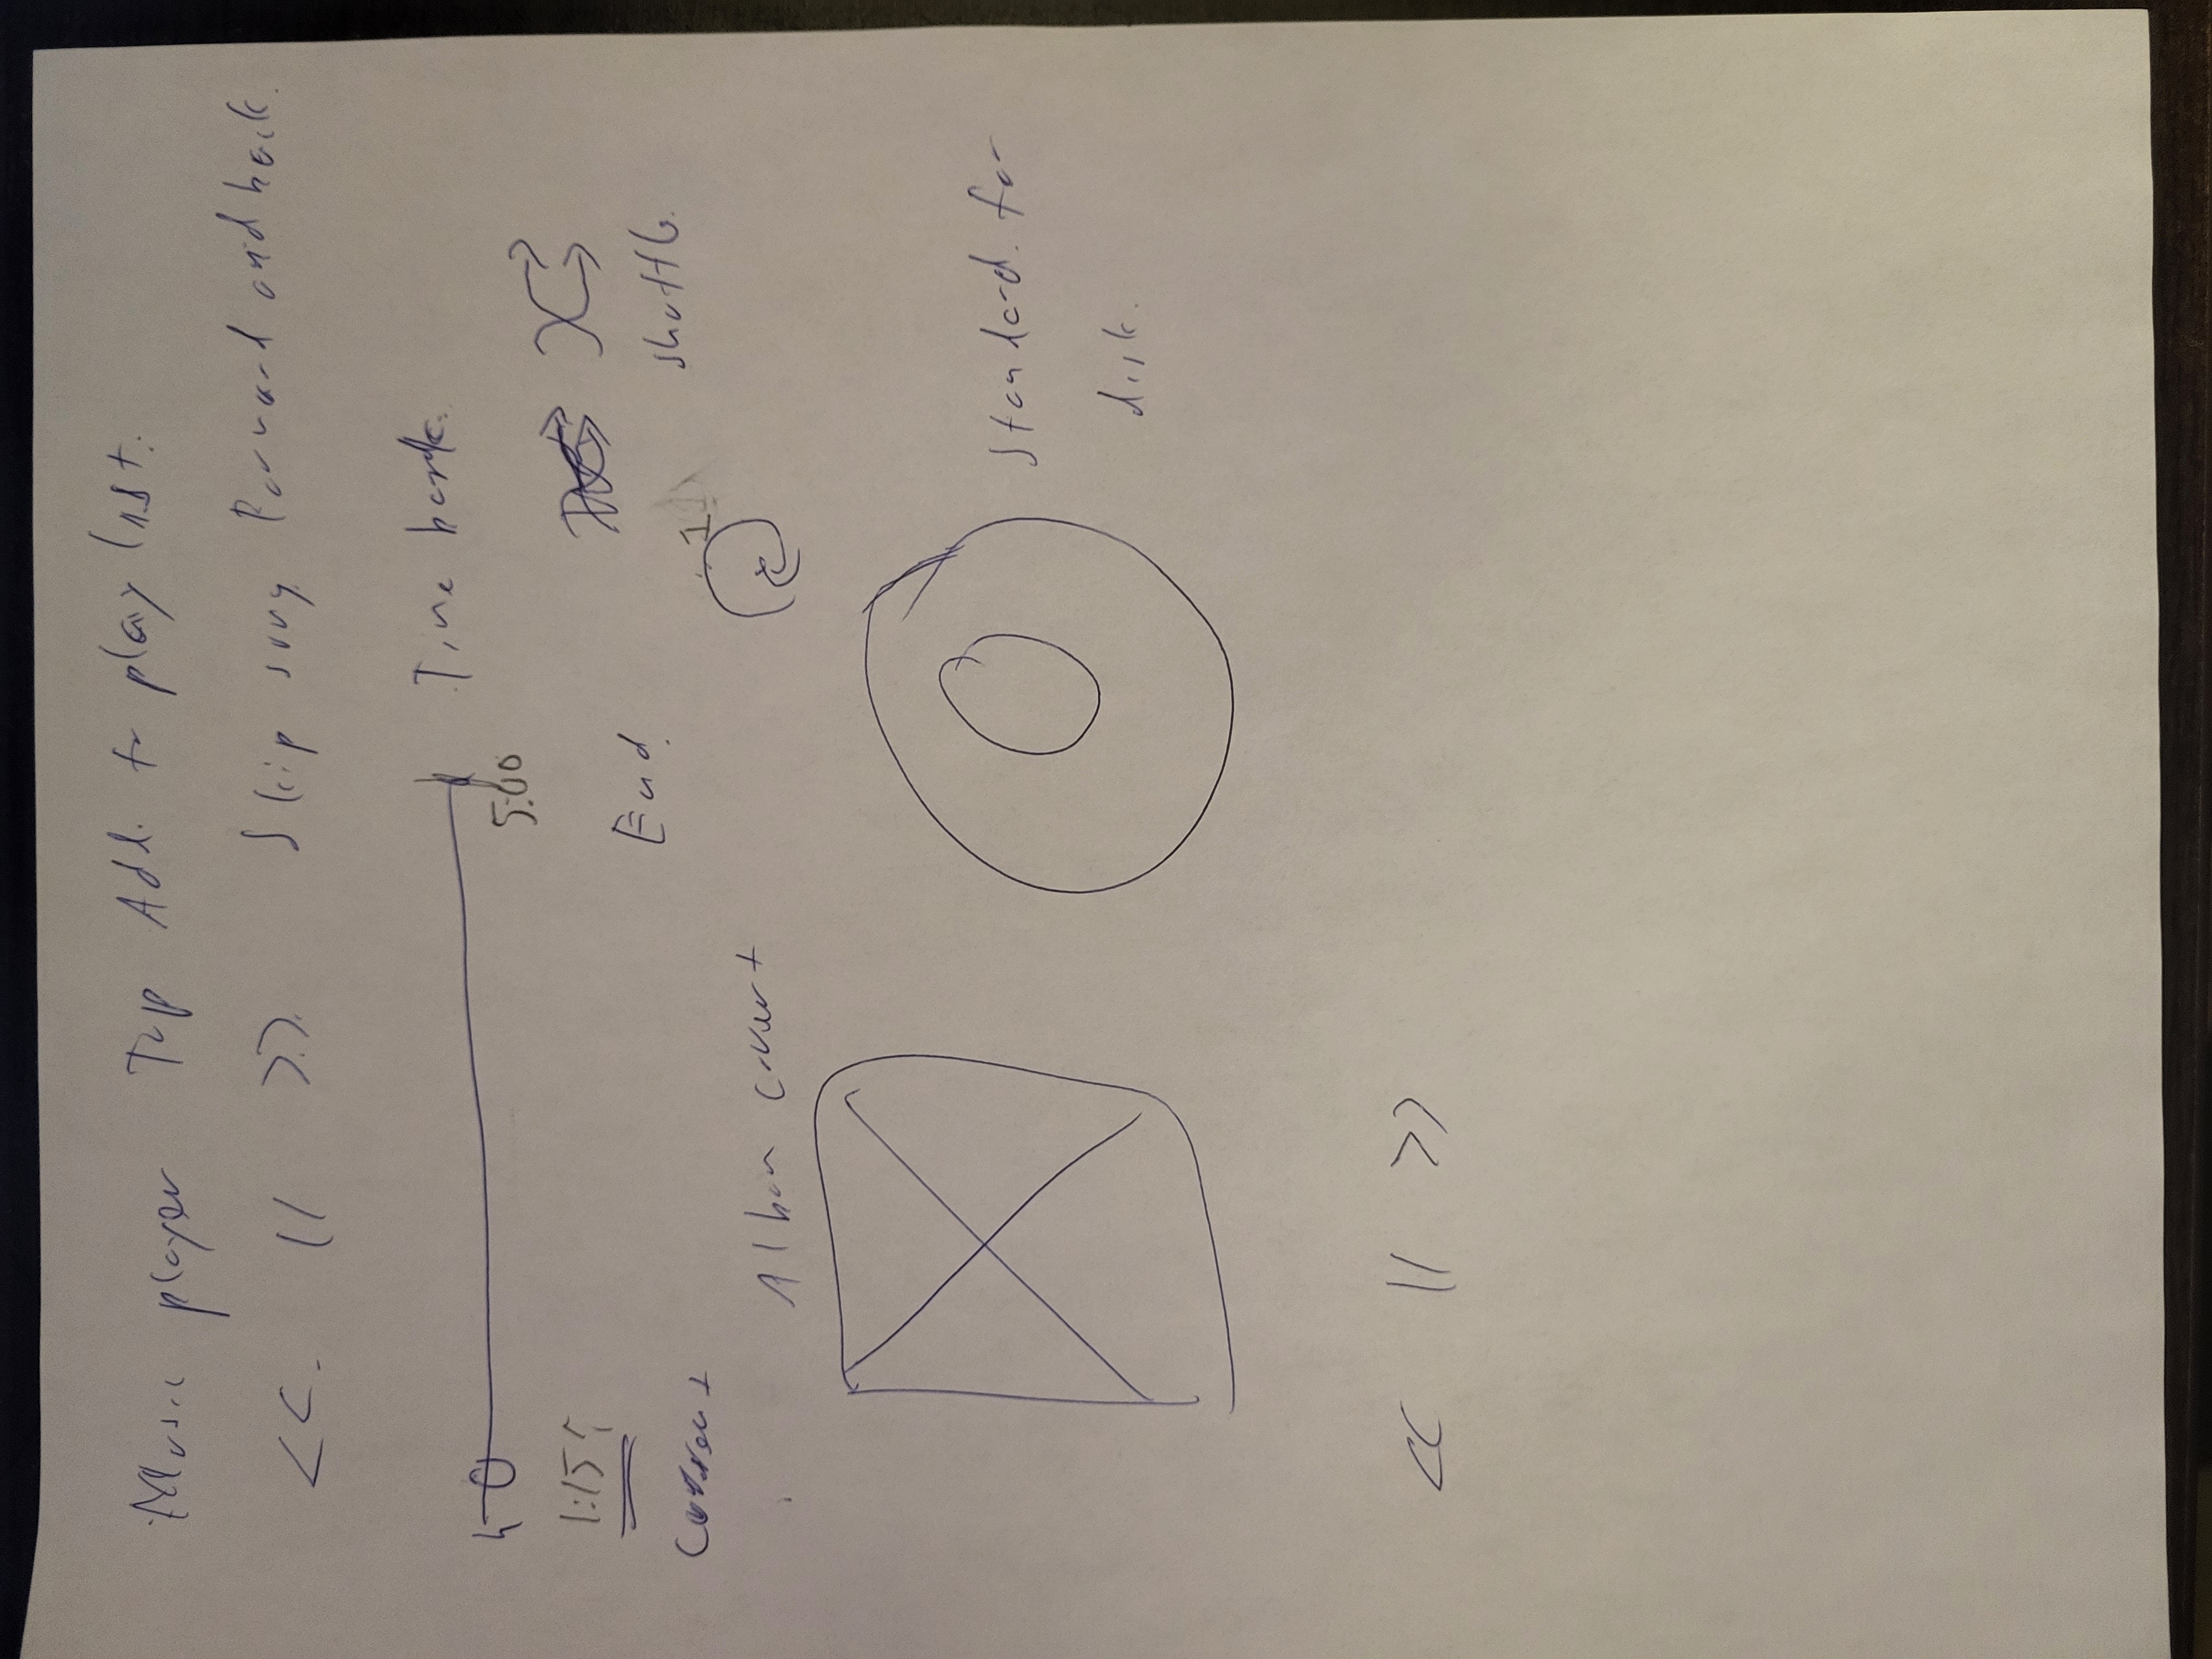 Music player Top Add to playlist.
<< || >> Skip song Forward and back.
Time bar
5:00
1:15
End
Current
shuffle.
1
Album cover
Standard for
disk.
<< || >>